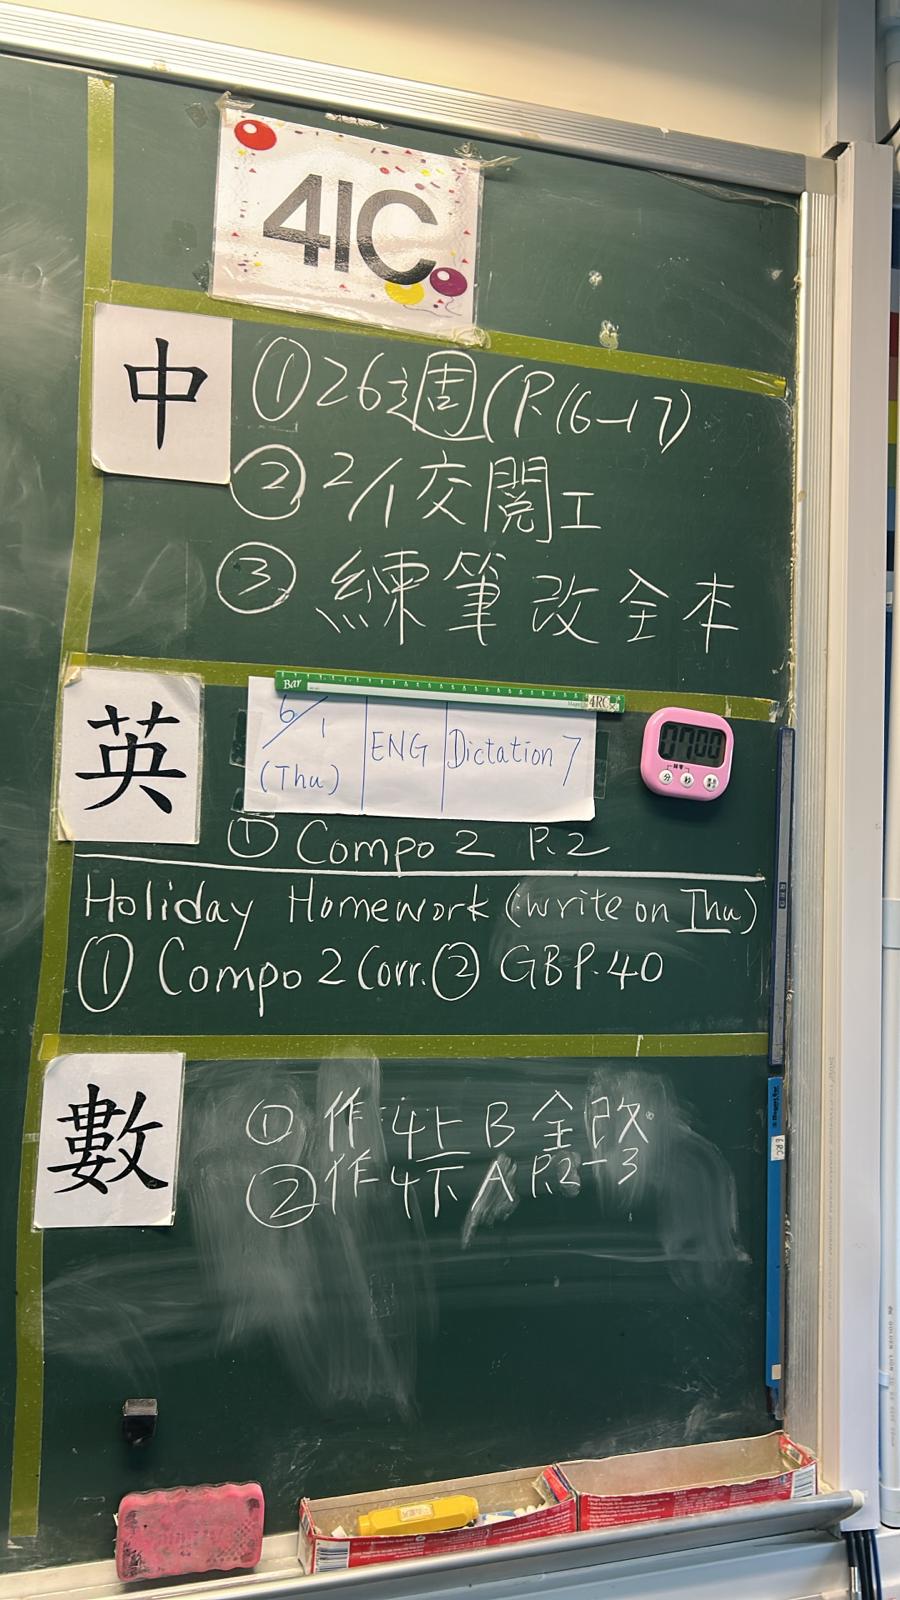 41C
中
①26週(P.16-17)
② 2/1交閱工
③ 練筆改全本
Bar
4RC
英
6/1 (Thu) ENG Dictation 7
07:00
分 秒
① Compo 2 P.2
Holiday Homework (write on Thu)
① Compo 2 Corr. ② GB P.40
數
① 作 4上 B 全改
② 作 4下 A P.2-3
6RC